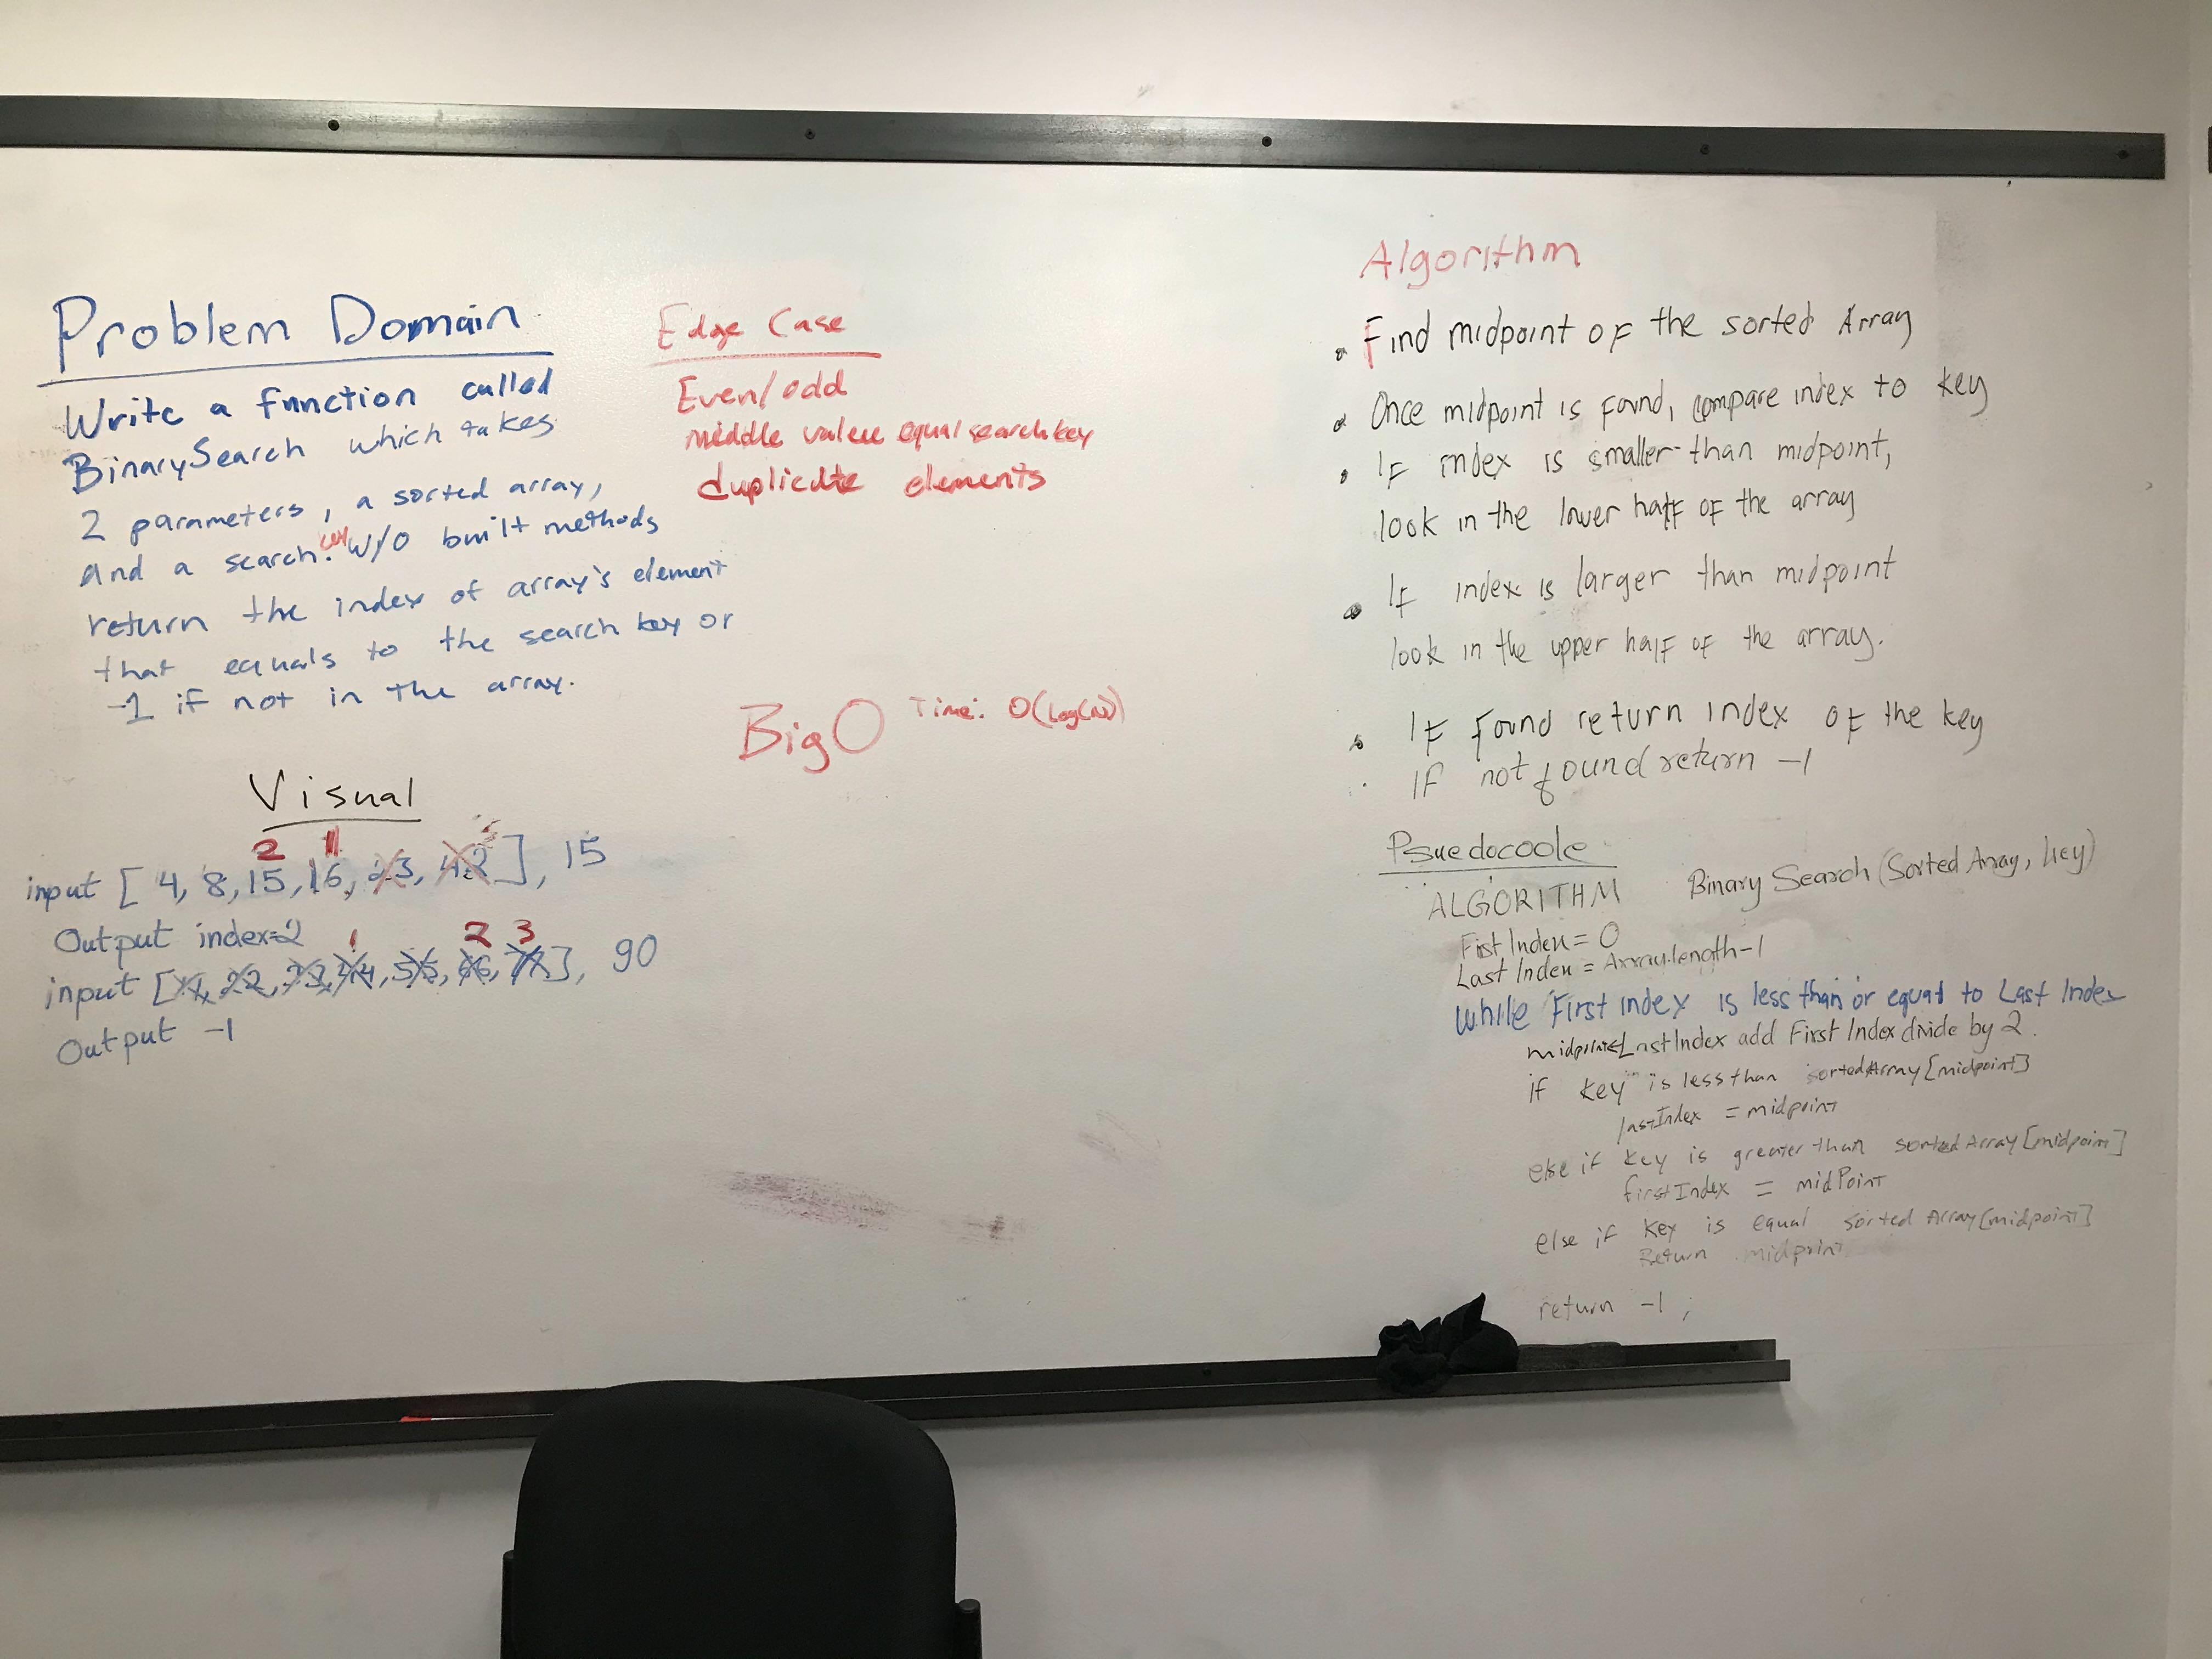 Problem Domain
Write a function called
BinarySearch which takes
2 parameters, a sorted array,
And a search key. W/O built methods
return the index of array's element
that equals to the search key or
-1 if not in the array.
Edge Case
Even/odd
middle value equal search key
duplicate elements
Big O Time: O(Log(N))
Visual
2 1
input [4, 8, 15, 16, 23, 42], 15
Output index=2
1 2 3
input [11, 22, 33, 44, 55, 66, 77], 90
Output -1
Algorithm
Find midpoint of the sorted Array
Once midpoint is found, compare index to key
If index is smaller than midpoint,
look in the lower half of the array
If index is larger than midpoint
look in the upper half of the array.
If found return index of the key
If not found return -1
Psuedocode
ALGORITHM Binary Search (Sorted Array, key)
Fist Index = 0
Last Index = Array.length-1
While First index is less than or equal to Last Index
midpoint←LastIndex add First Index divide by 2.
if key is less than sortedArray[midpoint]
lastIndex = midpoint
else if key is greater than sortedArray[midpoint]
firstIndex = midPoint
else if key is equal sorted Array[midpoint]
Return midpoint
return -1;